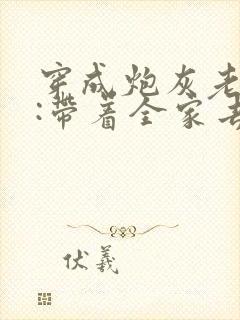 穿成炮灰老
:带着全家去
伏羲